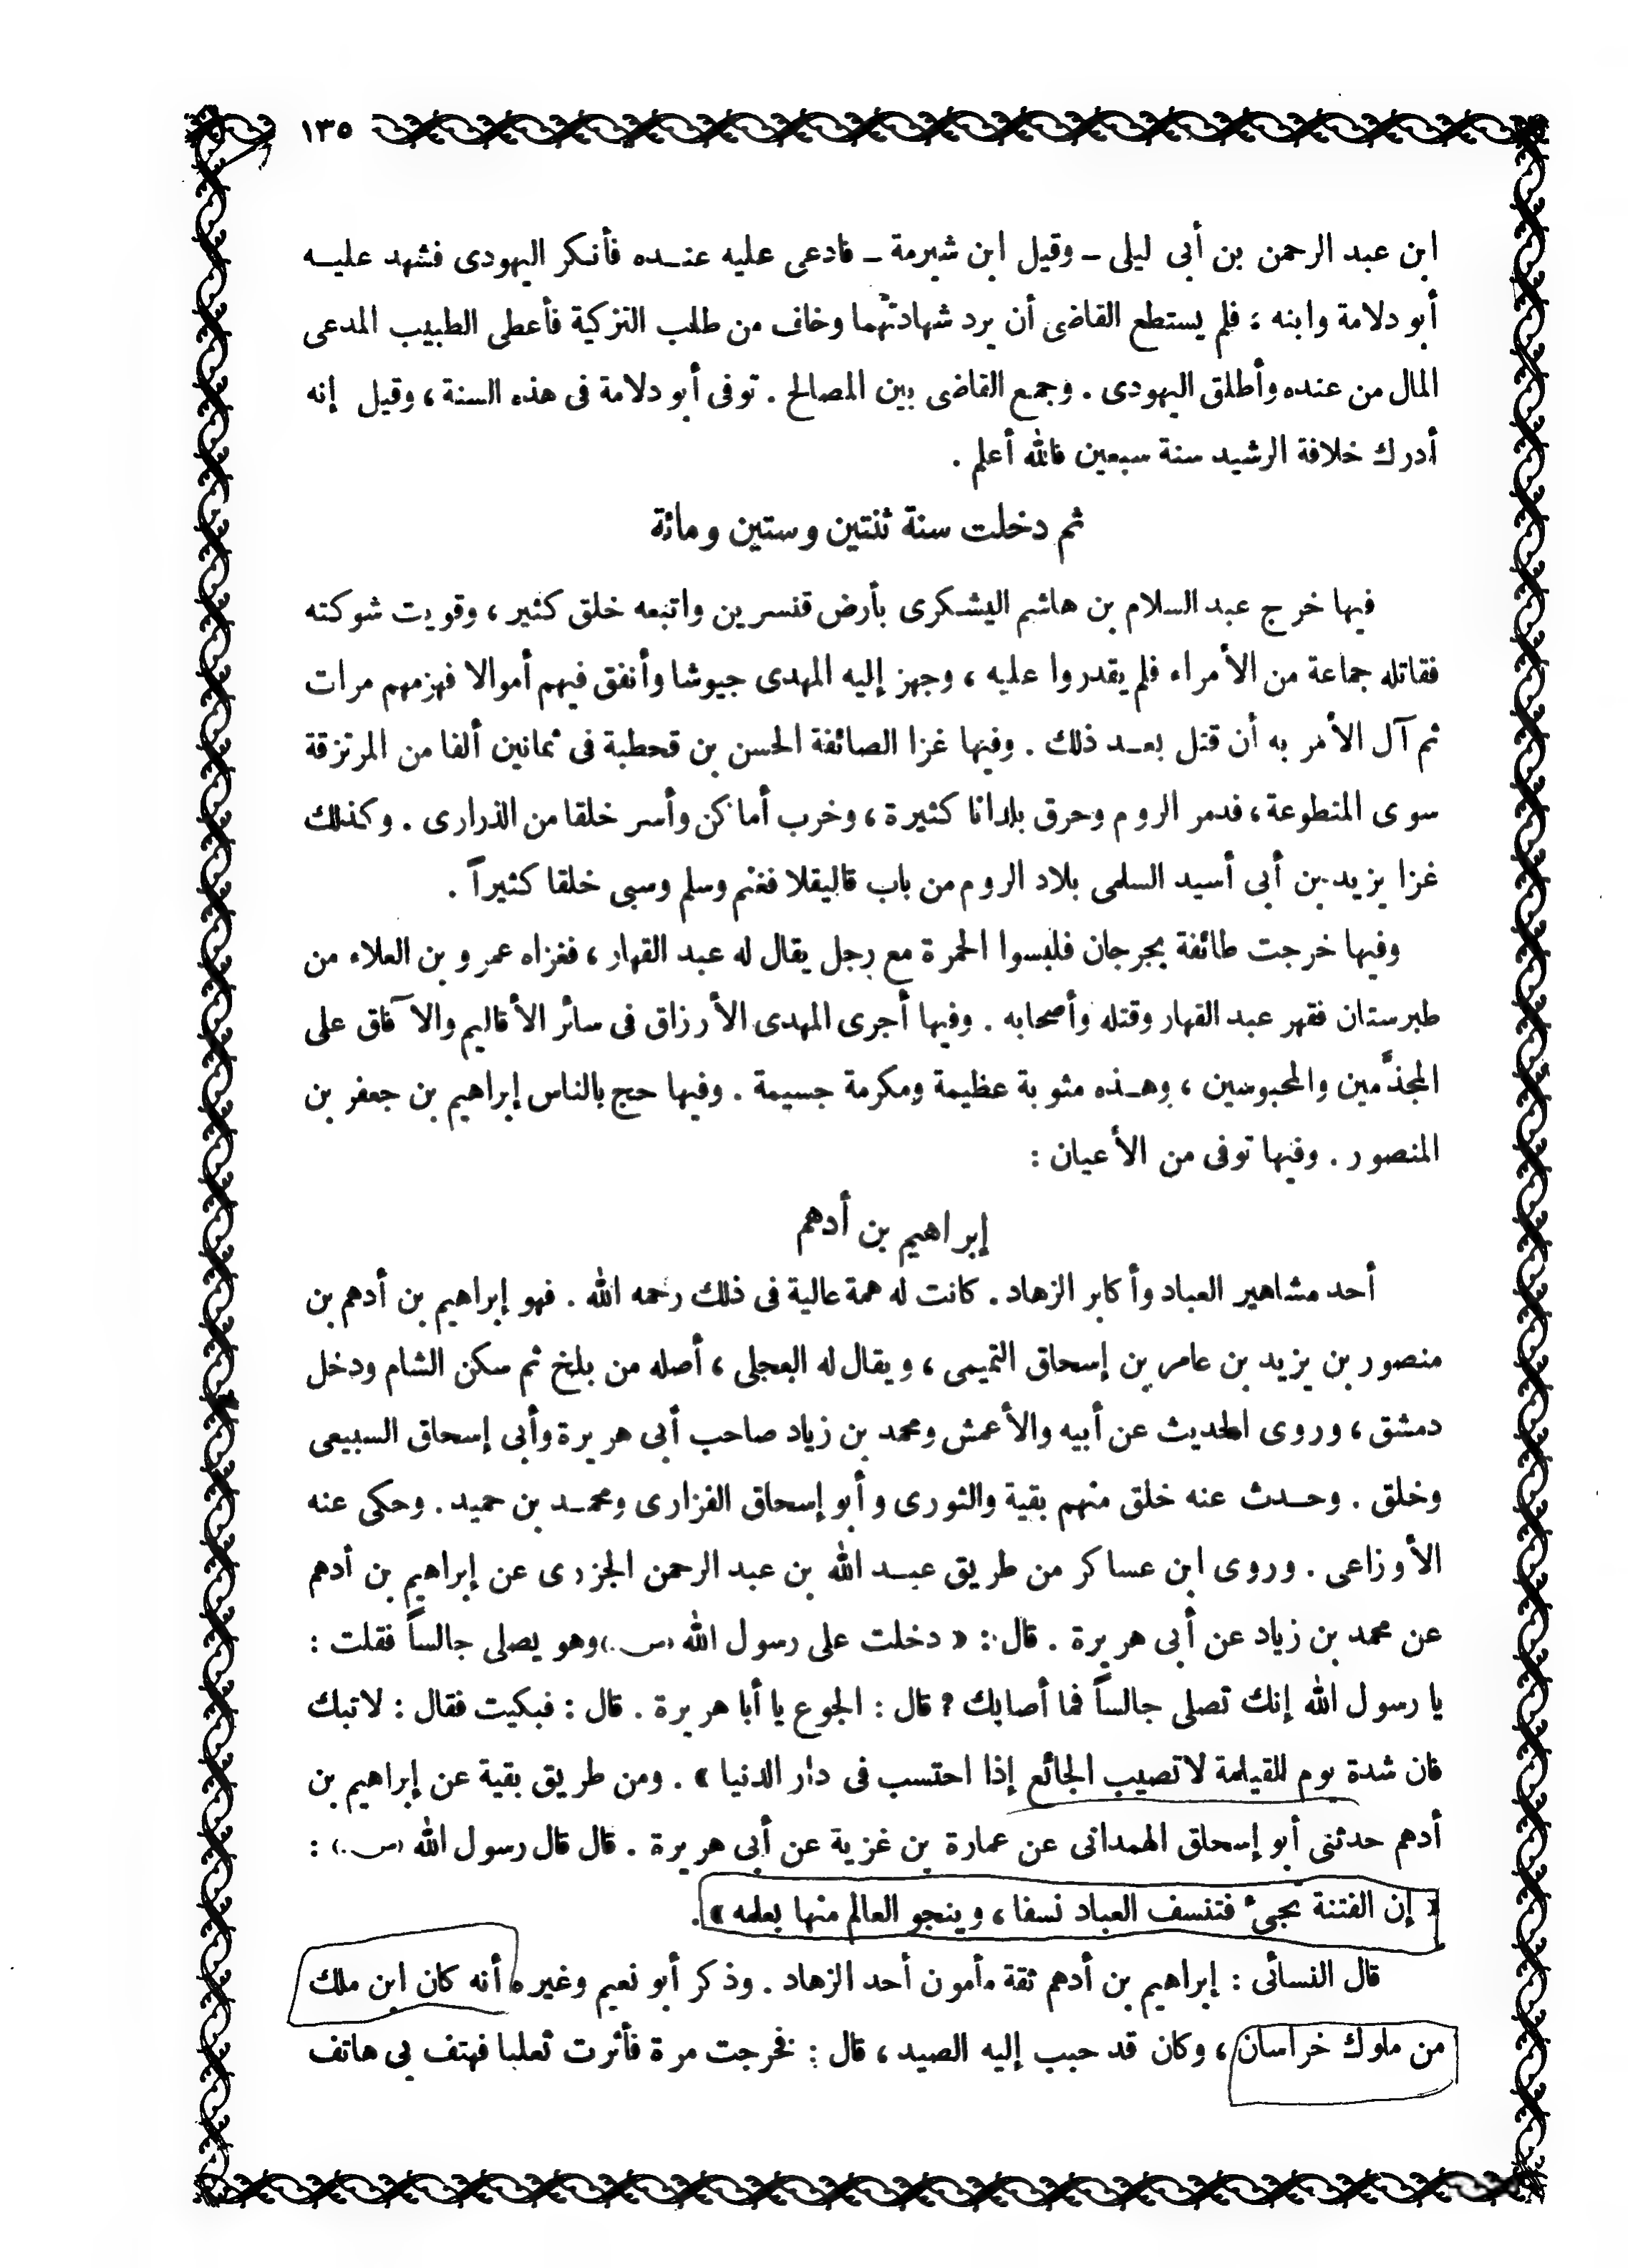 ١٣٥
ابن عبد الرحمن بن أبى ليلى ــ وقيل ابن شبرمة ــ فادعى عليه عنـده فأنكر اليهودى فشهد عليـه
أبو دلامة وابنه ؛ فلم يستطع القاضى أن يرد شهادتهما وخاف من طلب التزكية فأعطى الطبيب المدعى
المال من عنده وأطلق اليهودى . وجمع القاضى بين المصالح . توفى أبو دلامة فى هذه السنة ، وقيل إنه
أدرك خلافة الرشيد سنة سبعين فالله أعلم .
ثم دخلت سنة ثنتين وستين ومائة
فيها خرج عبد السلام بن هاشم اليشكرى بأرض قنسرين واتبعه خلق كثير ، وقويت شوكته
فقاتله جماعة من الأمراء فلم يقدروا عليه ، وجهز إليه المهدى جيوشا وأنفق فيهم أموالا فهزمهم مرات
ثم آل الأمر به أن قتل بعـد ذلك . وفيها غزا الصائفة الحسن بن قحطبة فى ثمانين ألفا من المرتزقة
سوى المتطوعة ، فدمر الروم وحرق بلدانا كثيرة ، وخرب أماكن وأسر خلقا من الذرارى . وكذلك
غزا يزيد بن أبى أسيد السلمى بلاد الروم من باب قاليقلا فغنم وسلم وسبى خلقا كثيراً .
وفيها خرجت طائفة بجرجان فلبسوا الحمرة مع رجل يقال له عبد القهار ، فغزاه عمرو بن العلاء من
طبرستان فقهر عبد القهار وقتله وأصحابه . وفيها أجرى المهدى الأرزاق فى سائر الأقاليم والآفاق على
المجذَّمين والمحبوسين ، وهـذه مثوبة عظيمة ومكرمة جسيمة . وفيها حج بالناس إبراهيم بن جعفر بن
المنصور . وفيها توفى من الأعيان :
إبراهيم بن أدهم
أحد مشاهير العباد وأكابر الزهاد . كانت له همة عالية فى ذلك رحمه الله . فهو إبراهيم بن أدهم بن
منصور بن يزيد بن عامر بن إسحاق التميمى ، ويقال له العجلى ، أصله من بلخ ثم سكن الشام ودخل
دمشق ، وروى الحديث عن أبيه والأعمش ومحمد بن زياد صاحب أبى هريرة وأبى إسحاق السبيعى
وخلق . وحـدث عنه خلق منهم بقية والثورى وأبو إسحاق الفزارى ومحمـد بن حميد . وحكى عنه
الأوزاعى . وروى ابن عساكر من طريق عبـد الله بن عبد الرحمن الجزرى عن إبراهيم بن أدهم
عن محمد بن زياد عن أبى هريرة . قال : « دخلت على رسول الله (س.) وهو يصلى جالساً فقلت :
يا رسول الله إنك تصلى جالساً فما أصابك ? قال : الجوع يا أبا هريرة . قال : فبكيت فقال : لا تبك
فان شدة يوم القيامة لا تصيب الجائع إذا احتسب فى دار الدنيا » . ومن طريق بقية عن إبراهيم بن
أدهم حدثنى أبو إسحاق الهمدانى عن عمارة بن غزية عن أبى هريرة . قال قال رسول الله (س.) :
« إن الفتنة تجىء فتنسف العباد نسفا ، وينجو العالم منها بعلمه » .
قال النسائى : إبراهيم بن أدهم ثقة مأمون أحد الزهاد . وذكر أبو نعيم وغيره أنه كان ابن ملك
من ملوك خراسان ، وكان قد حبب إليه الصيد ، قال : فخرجت مرة فأثرت ثعلبا فهتف بى هاتف